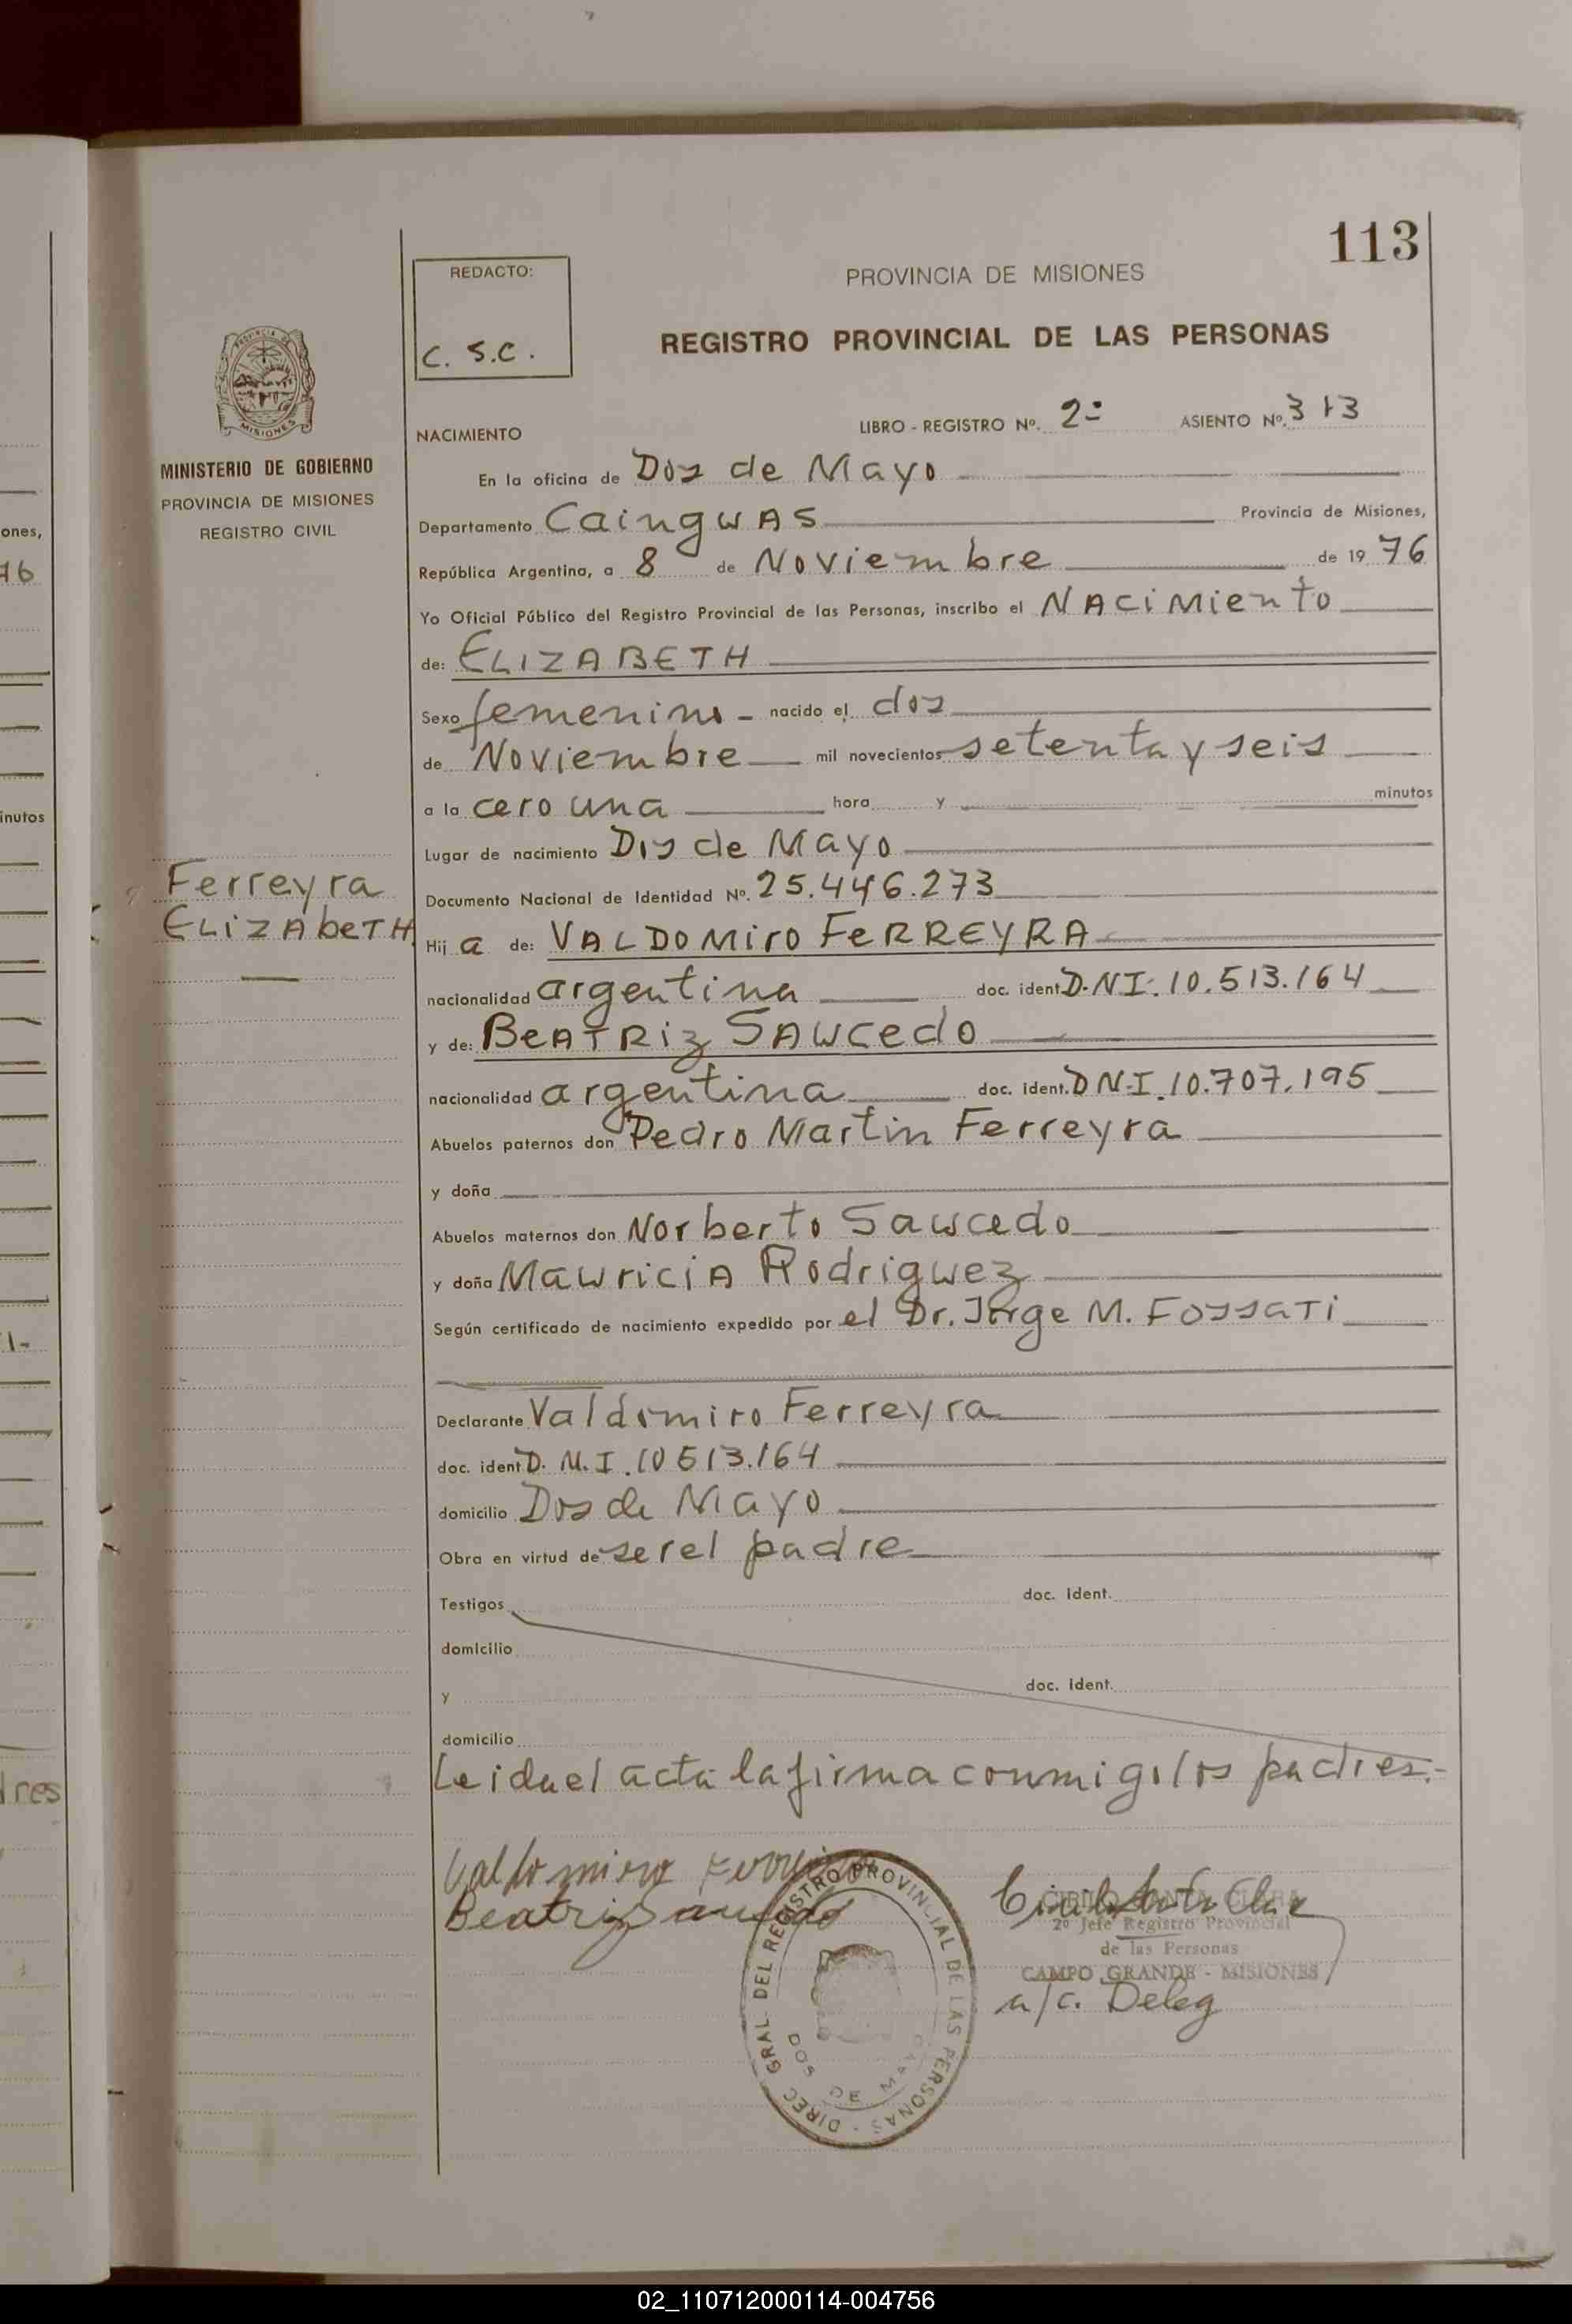 113
REDACTO:
C. S.C.
PROVINCIA DE MISIONES
REGISTRO PROVINCIAL DE LAS PERSONAS
PROVINCIA DE
MISIONES
MINISTERIO DE GOBIERNO
PROVINCIA DE MISIONES
REGISTRO CIVIL
NACIMIENTO LIBRO - REGISTRO Nº. 2º ASIENTO Nº. 313
En la oficina de Dos de Mayo
Departamento Cainguas Provincia de Misiones,
República Argentina, a 8 de Noviembre de 19 76
Yo Oficial Público del Registro Provincial de las Personas, inscribo el NACiMiento
de: ELIZABETH
Sexo femenino - nacido el dos
de Noviembre mil novecientos setenta y seis
a la cero una hora y minutos
Lugar de nacimiento Dos de Mayo
Ferreyra
ELiZAbeTH
Documento Nacional de Identidad Nº. 25.446.273
Hij a de: VALDOMiro FeRREYRA
nacionalidad argentina doc. ident. D.N.I. 10.513.164
y de: BeATRiz SAucedo
nacionalidad argentina doc. ident. D N.I. 10.707.195
Abuelos paternos don Pedro Martin Ferreyra
y doña
Abuelos maternos don Norberto Saucedo
y doña MauriciA Rodriguez
Según certificado de nacimiento expedido por el Dr. Jorge M. FossaTi
Declarante Valdomiro Ferreyra
doc. ident D. N. I. 10 513.164
domicilio Dos de Mayo
Obra en virtud de ser el padre
Testigos doc. ident.
domicilio
y doc. ident.
domicilio
Leida el acta la firma conmigo los padres.-
Valdomiro Ferreira
Beatriz Saucedo
DIREC. GRAL. DEL REGISTRO PROVINCIAL DE LAS PERSONAS
DOS DE MAYO
Cirilo Santa Clara
CIRILO SANTA CLARA
2º Jefe Registro Provincial
de las Personas
CAMPO GRANDE - MISIONES
a/c. Deleg
ones,
76
inutos
1-
dres
02_110712000114-004756